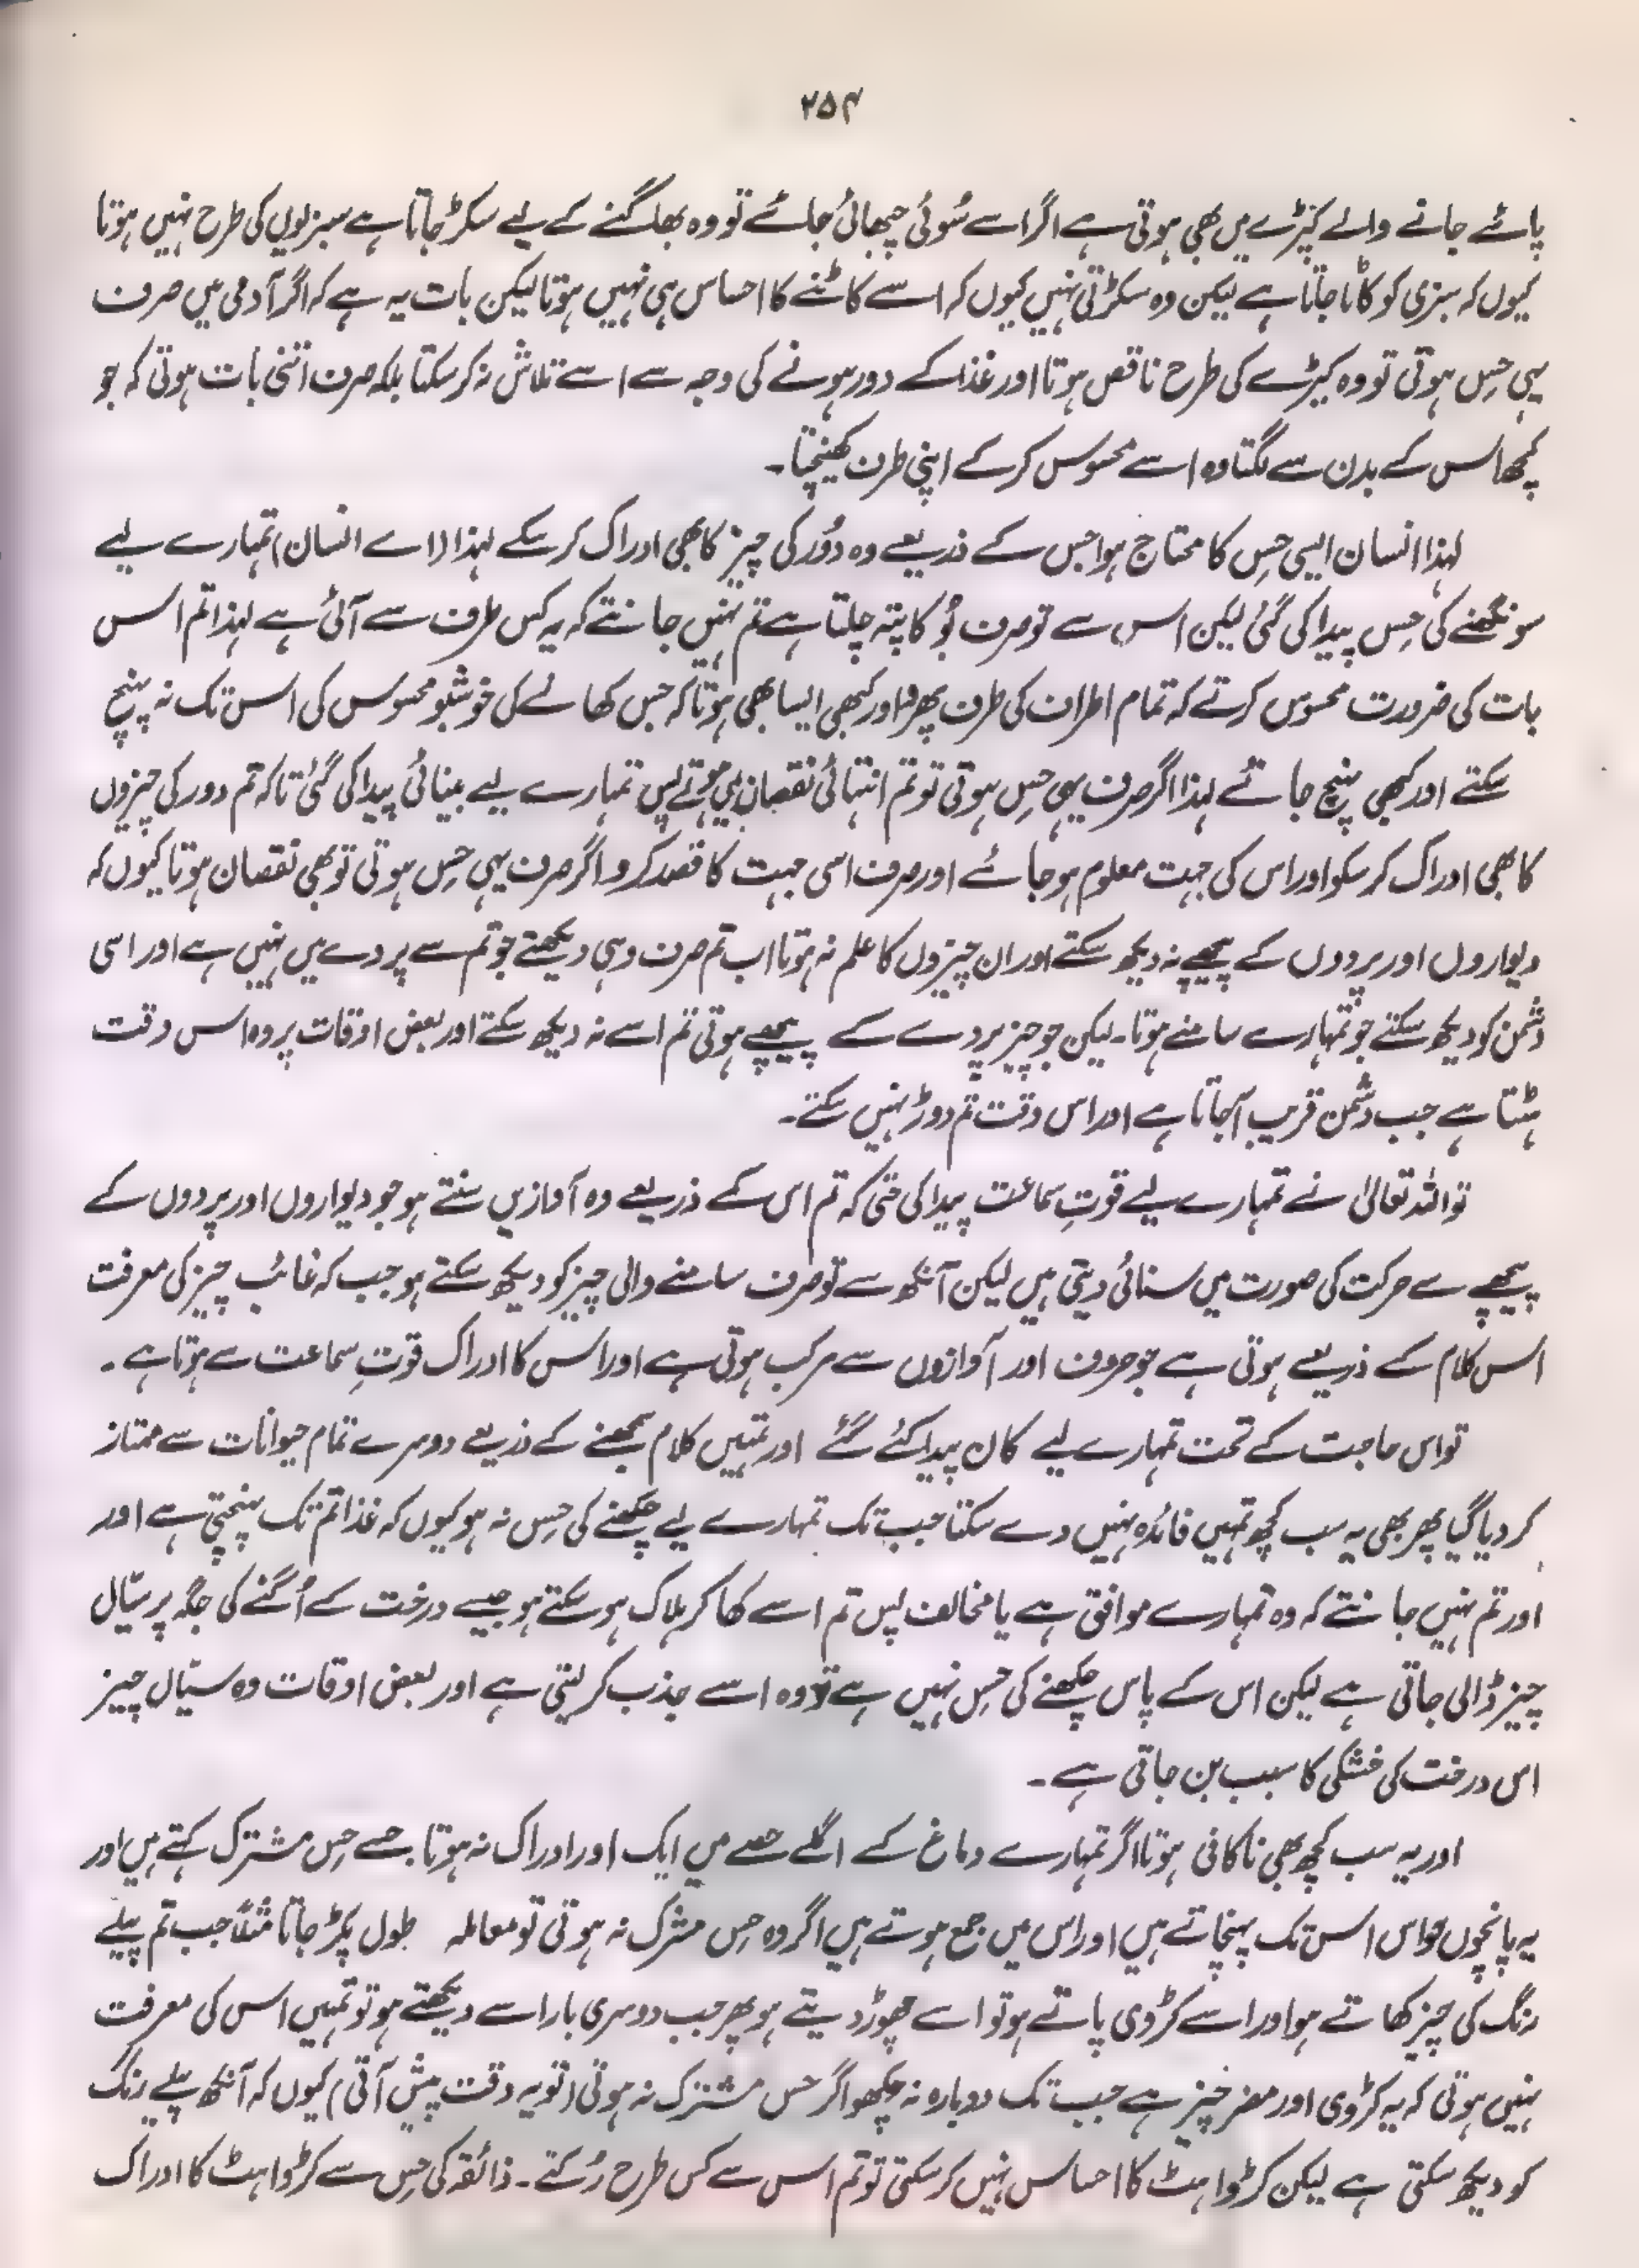 ۲۵۴
پائے جانے والے کیڑے میں بھی ہوتی ہے اگر اسے سُوئی چبھائی جائے تو وہ بھاگنے کے لیے سکڑ جاتا ہے سبزیوں کی طرح نہیں ہوتا
کیوں کہ سبزی کو کاٹا جاتا ہے لیکن وہ سکڑتی نہیں کیوں کہ اسے کاٹنے کا احساس ہی نہیں ہوتا لیکن بات یہ ہے کہ اگر آدمی میں صرف
یہی حِس ہوتی تو وہ کیڑے کی طرح ناقص ہوتا اور غذا کے دور ہونے کی وجہ سے اسے تلاش نہ کرسکتا بلکہ صرف اتنی بات ہوتی کہ جو
کچھ اس کے بدن سے لگتا وہ اسے محسوس کرکے اپنی طرف کھینچتا۔
لہذا انسان ایسی حِس کا محتاج ہوا جس کے ذریعے وہ دُور کی چیز کا بھی ادراک کرسکے لہذا (اے انسان) تمہارے لیے
سونگھنے کی حِس پیدا کی گئی لیکن اس سے تو صرف بُو کا پتہ چلتا ہے تم نہیں جانتے کہ یہ کس طرف سے آئی ہے لہذا تم اس
بات کی ضرورت محسوس کرتے کہ تمام اطراف کی طرف پھرو اور کبھی ایسا بھی ہوتا کہ جس کھانے کی خوشبو محسوس کی اس تک نہ پہنچ
سکتے اور کبھی پہنچ جاتے لہذا اگر صرف یہی حِس ہوتی تو تم انتہائی نقصان میں ہوتے پس تمہارے لیے بینائی پیدا کی گئی تاکہ تم دور کی چیزوں
کا بھی ادراک کرسکو اور اس کی جہت معلوم ہوجائے اور صرف اسی جہت کا قصد کرو اگر صرف یہی حِس ہوتی تو بھی نقصان ہوتا کیوں کہ
دیواروں اور پردوں کے پیچھے نہ دیکھ سکتے اور ان چیزوں کا علم نہ ہوتا اب تم صرف وہی دیکھتے جو تم سے پردے میں نہیں ہے اور اسی
دشمن کو دیکھ سکتے جو تمہارے سامنے ہوتا۔ لیکن جو چیز پردے کے پیچھے ہوتی تم اسے نہ دیکھ سکتے اور بعض اوقات پردہ اس وقت
ہٹتا ہے جب دشمن قریب آجاتا ہے اور اس وقت تم دوڑ نہیں سکتے۔
تو اللہ تعالیٰ نے تمہارے لیے قوتِ سماعت پیدا کی حتی کہ تم اس کے ذریعے وہ آوازیں سنتے ہو جو دیواروں اور پردوں کے
پیچھے سے حرکت کی صورت میں سنائی دیتی ہیں لیکن آنکھ سے تو صرف سامنے والی چیز کو دیکھ سکتے ہو جب کہ غائب چیز کی معرفت
اس کلام کے ذریعے ہوتی ہے جو حروف اور آوازوں سے مرکب ہوتی ہے اور اس کا ادراک قوتِ سماعت سے ہوتا ہے۔
تو اس حاجت کے تحت تمہارے لیے کان پیدا کئے گئے اور تمہیں کلام سمجھنے کے ذریعے دوسرے تمام حیوانات سے ممتاز
کر دیا گیا پھر بھی یہ سب کچھ تمہیں فائدہ نہیں دے سکتا جب تک تمہارے لیے چکھنے کی حِس نہ ہو کیوں کہ غذا تم تک پہنچتی ہے اور
اور تم نہیں جانتے کہ وہ تمہارے موافق ہے یا مخالف پس تم اسے کھا کر ہلاک ہوسکتے ہو جیسے درخت کے اُگنے کی جگہ پر سیّال
چیز ڈالی جاتی ہے لیکن اس کے پاس چکھنے کی حِس نہیں ہے تو وہ اسے جذب کرلیتی ہے اور بعض اوقات وہ سیّال چیز
اس درخت کی خشکی کا سبب بن جاتی ہے۔
اور یہ سب کچھ بھی ناکافی ہوتا اگر تمہارے دماغ کے اگلے حصے میں ایک اور ادراک نہ ہوتا جسے حِس مشترک کہتے ہیں اور
یہ پانچوں حواس اس تک پہنچاتے ہیں اور اس میں جمع ہوتے ہیں اگر وہ حِس مشترک نہ ہوتی تو معاملہ طول پکڑ جاتا مثلاً جب تم پیلے
رنگ کی چیز کھاتے ہو اور اسے کڑوی پاتے ہو تو اسے چھوڑ دیتے ہو پھر جب دوسری بار اسے دیکھتے ہو تو تمہیں اس کی معرفت
نہیں ہوتی کہ یہ کڑوی اور مضر چیز ہے جب تک دوبارہ نہ چکھو اگر حس مشترک نہ ہوتی (تو یہ دقت پیش آتی) کیوں کہ آنکھ پیلے رنگ
کو دیکھ سکتی ہے لیکن کڑواہٹ کا احساس نہیں کرسکتی تو تم اس سے کس طرح رُکتے۔ ذائقہ کی حِس سے کڑواہٹ کا ادراک